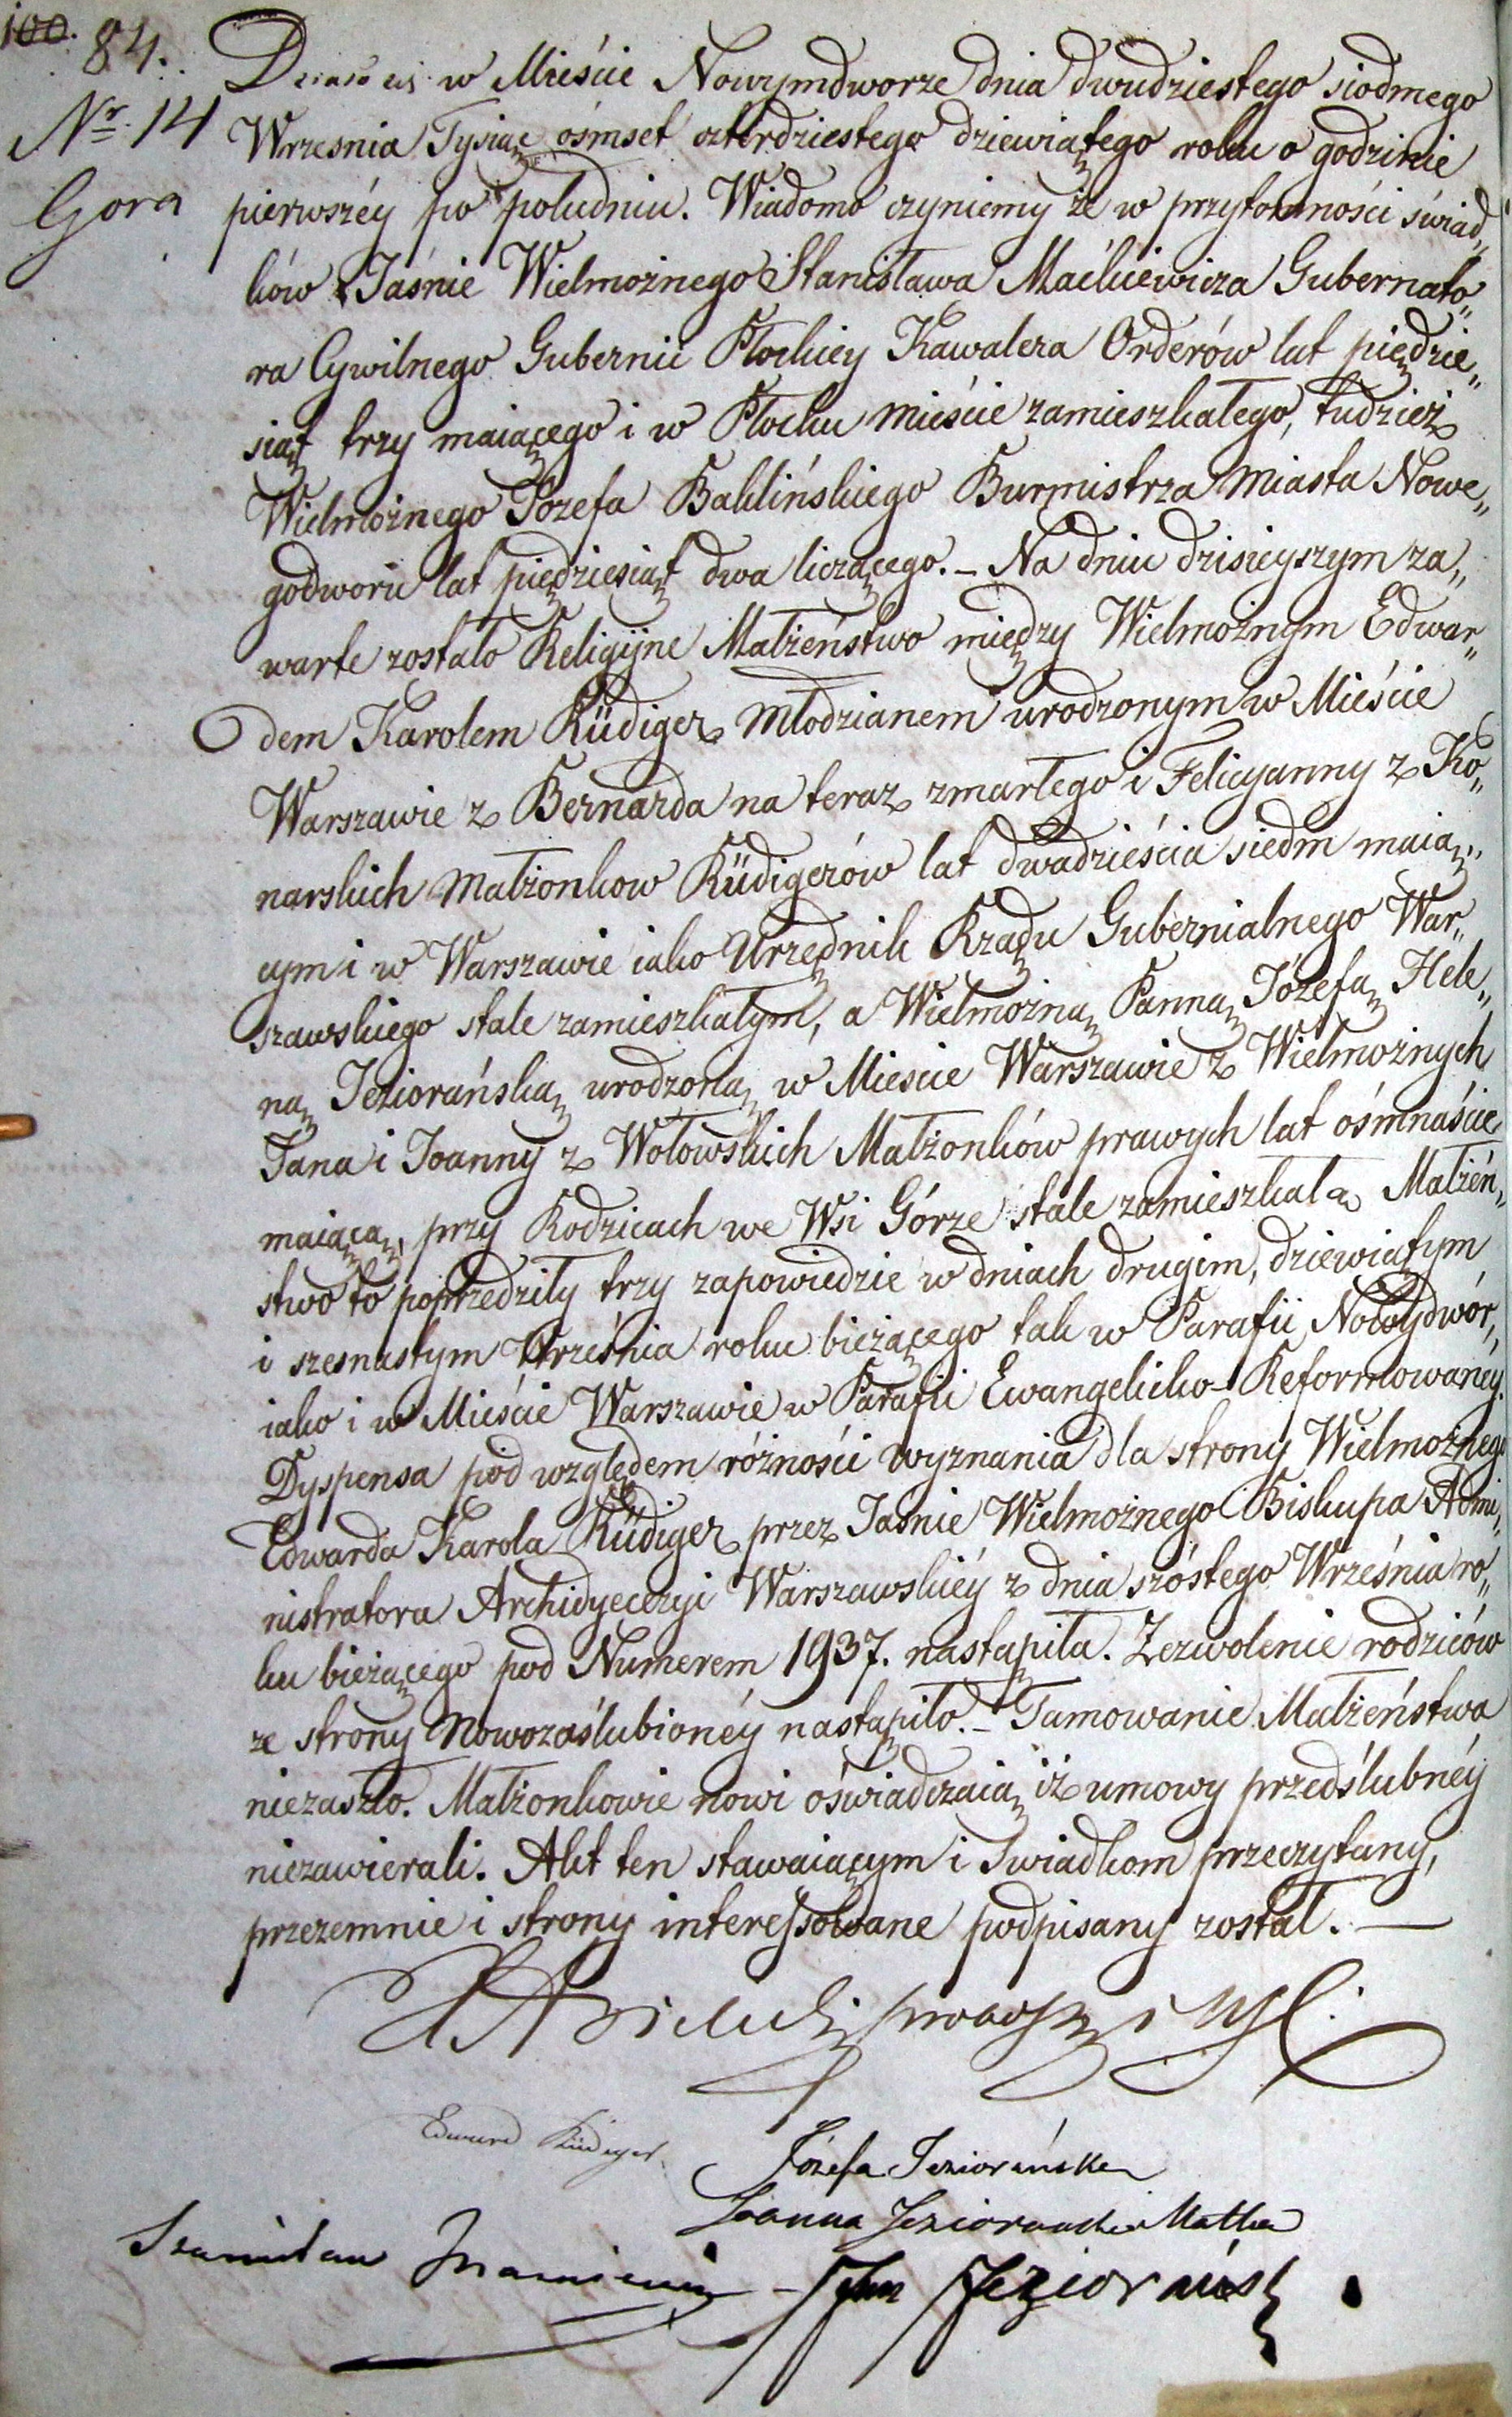 100. 84.
Nr. 14
Gora
Działo się w Mieście Nowymdworze dnia dwudziestego siodmego
Wrzesnia Tysiąc ośmset czterdziestego dziewiątego roku o godzinie
pierwszéy po południu. Wiadomo czyniemy że w przytomności świad„
ków Jaśnie Wielmożnego Stanisława Maćkiewicza Gubernato„
ra Cywilnego Gubernii Płockiey Kawalera Orderów lat pięćdzie„
siąt trzy maiącego i w Płocku mieście zamieszkałego, tudzież
Wielmożnego Józefa Baklińskiego Burmistrza Miasta Nowe„
godworu lat pięćdziesiąt dwa liczącego. – Na dniu dzisieyszym za„
warte zostało Religijne Małżeństwo między Wielmożnym Edwar„
dem Karolem Rüdiger Młodzianem urodzonym w Mieście
Warszawie z Bernarda na teraz zmarłego i Felicyanny z Ko„
narskich Małżonkow Rüdigerów lat dwadzieścia siedm maią„
cym i w Warszawie iako Urzędnik Rządu Gubernialnego War„
szawskiego stale zamieszkałym, a Wielmożną Panną Józefą Hele„
ną Jeziorańską urodzoną w Miescie Warszawie z Wielmożnych
Jana i Joanny z Wołowskich Małżonków prawych lat ośmnaście
maiącą, przy Rodzicach we Wsi Górze stale zamieszkałą Małżeń„
stwo to poprzedziły trzy zapowiedzie w dniach drugim, dziewiątym
i szesnastym Września roku bieżącego tak w Parafii Nowydwór,
iako i w Mieście Warszawie w Parafii Ewangelicko-Reformowanéy.
Dyspensa pod względem różności wyznania dla strony Wielmożnego
Edwarda Karola Rüdiger przez Jaśnie Wielmożnego Biskupa Admi„
nistratora Archidyecezyi Warszawskiéy z dnia szóstego Września ro„
ku bieżącego pod Numerem 1937. nastąpiła. Zezwolenie rodziców
ze strony Nowozaślubionéy nastąpiło. – Tamowanie Małżeństwa
niezaszło. Małżonkowie nowi oświadczaią iż umowy przedślubnéy
niezawierali. Akt ten stawaiącym i Swiadkom przeczytany,
przezemnie i strony interessowane podpisany został. —
Edward Rüdiger
Józefa Jeziorańska
Joanna Jeziorańska Matka
Stanisław
Jan Jeziorański